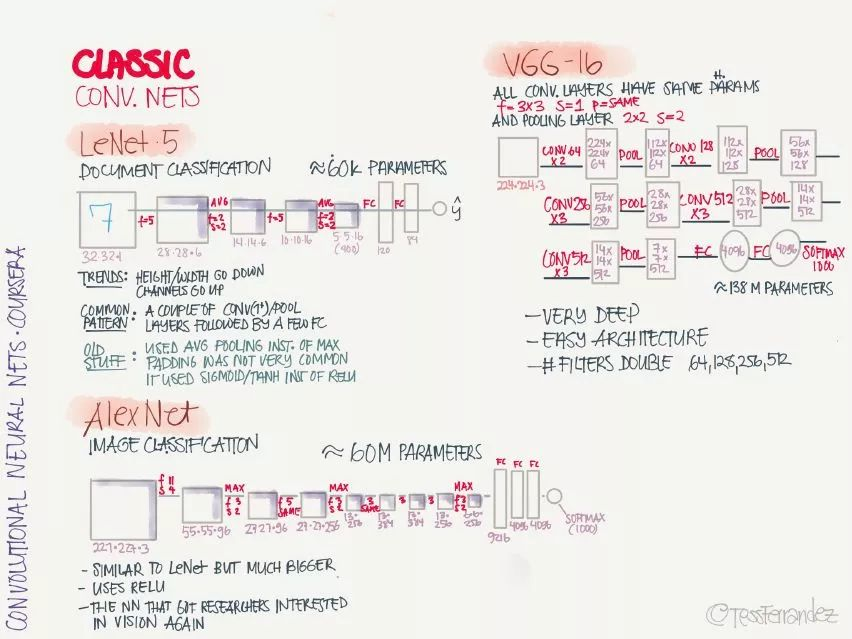 CLASSIC
CONV. NETS
LeNet-5
DOCUMENT CLASSIFICATION ≈60K PARAMETERS
7
f=5
AVG
f=2
S=2
f=5
AVG
f=2
S=2
FC
FC
ŷ
32·32·1
28·28·6
14·14·6
10·10·16
5·5·16
(400)
120
84
TRENDS: HEIGHT/WIDTH GO DOWN
CHANNELS GO UP
COMMON PATTERN: A COUPLE OF CONV(1+)/POOL
LAYERS FOLLOWED BY A FEW FC
OLD STUFF: USED AVG POOLING INST. OF MAX
PADDING WAS NOT VERY COMMON
IT USED SIGMOID/TANH INST OF RELU
AlexNet
IMAGE CLASSIFICATION ≈ 60M PARAMETERS
f 11
S 4
MAX
f 3
S 2
f 5
SAME
MAX
f 3
S 2
3
SAME
3
3
MAX
f 3
S 2
FC FC FC
227·227·3
55·55·96
27·27·96
27·27·256
13·
256
13·
384
13·
384
13·
256
6·6·
256
9216
4096
4096
SOFTMAX
(1000)
- SIMILAR TO LeNet BUT MUCH BIGGER
- USES RELU
- THE NN THAT GOT RESEARCHERS INTERESTED
IN VISION AGAIN
VGG-16
ALL CONV. LAYERS HAVE SAME PARAMS
f=3x3 S=1 P=SAME
AND POOLING LAYER 2x2 S=2
224·224·3
CONV 64
x2
224x
224x
64
POOL
112x
112x
64
CONV 128
x2
112x
112x
128
POOL
56x
56x
128
CONV 256
x3
56x
56x
256
POOL
28x
28x
256
CONV 512
x3
28x
28x
512
POOL
14x
14x
512
CONV 512
x3
14x
14x
512
POOL
7x
7x
512
FC
4096
FC
4096
SOFTMAX
1000
≈138M PARAMETERS
- VERY DEEP
- EASY ARCHITECTURE
- # FILTERS DOUBLE 64,128,256,512
CONVOLUTIONAL NEURAL NETS · COURSERA
©TessFerrandez